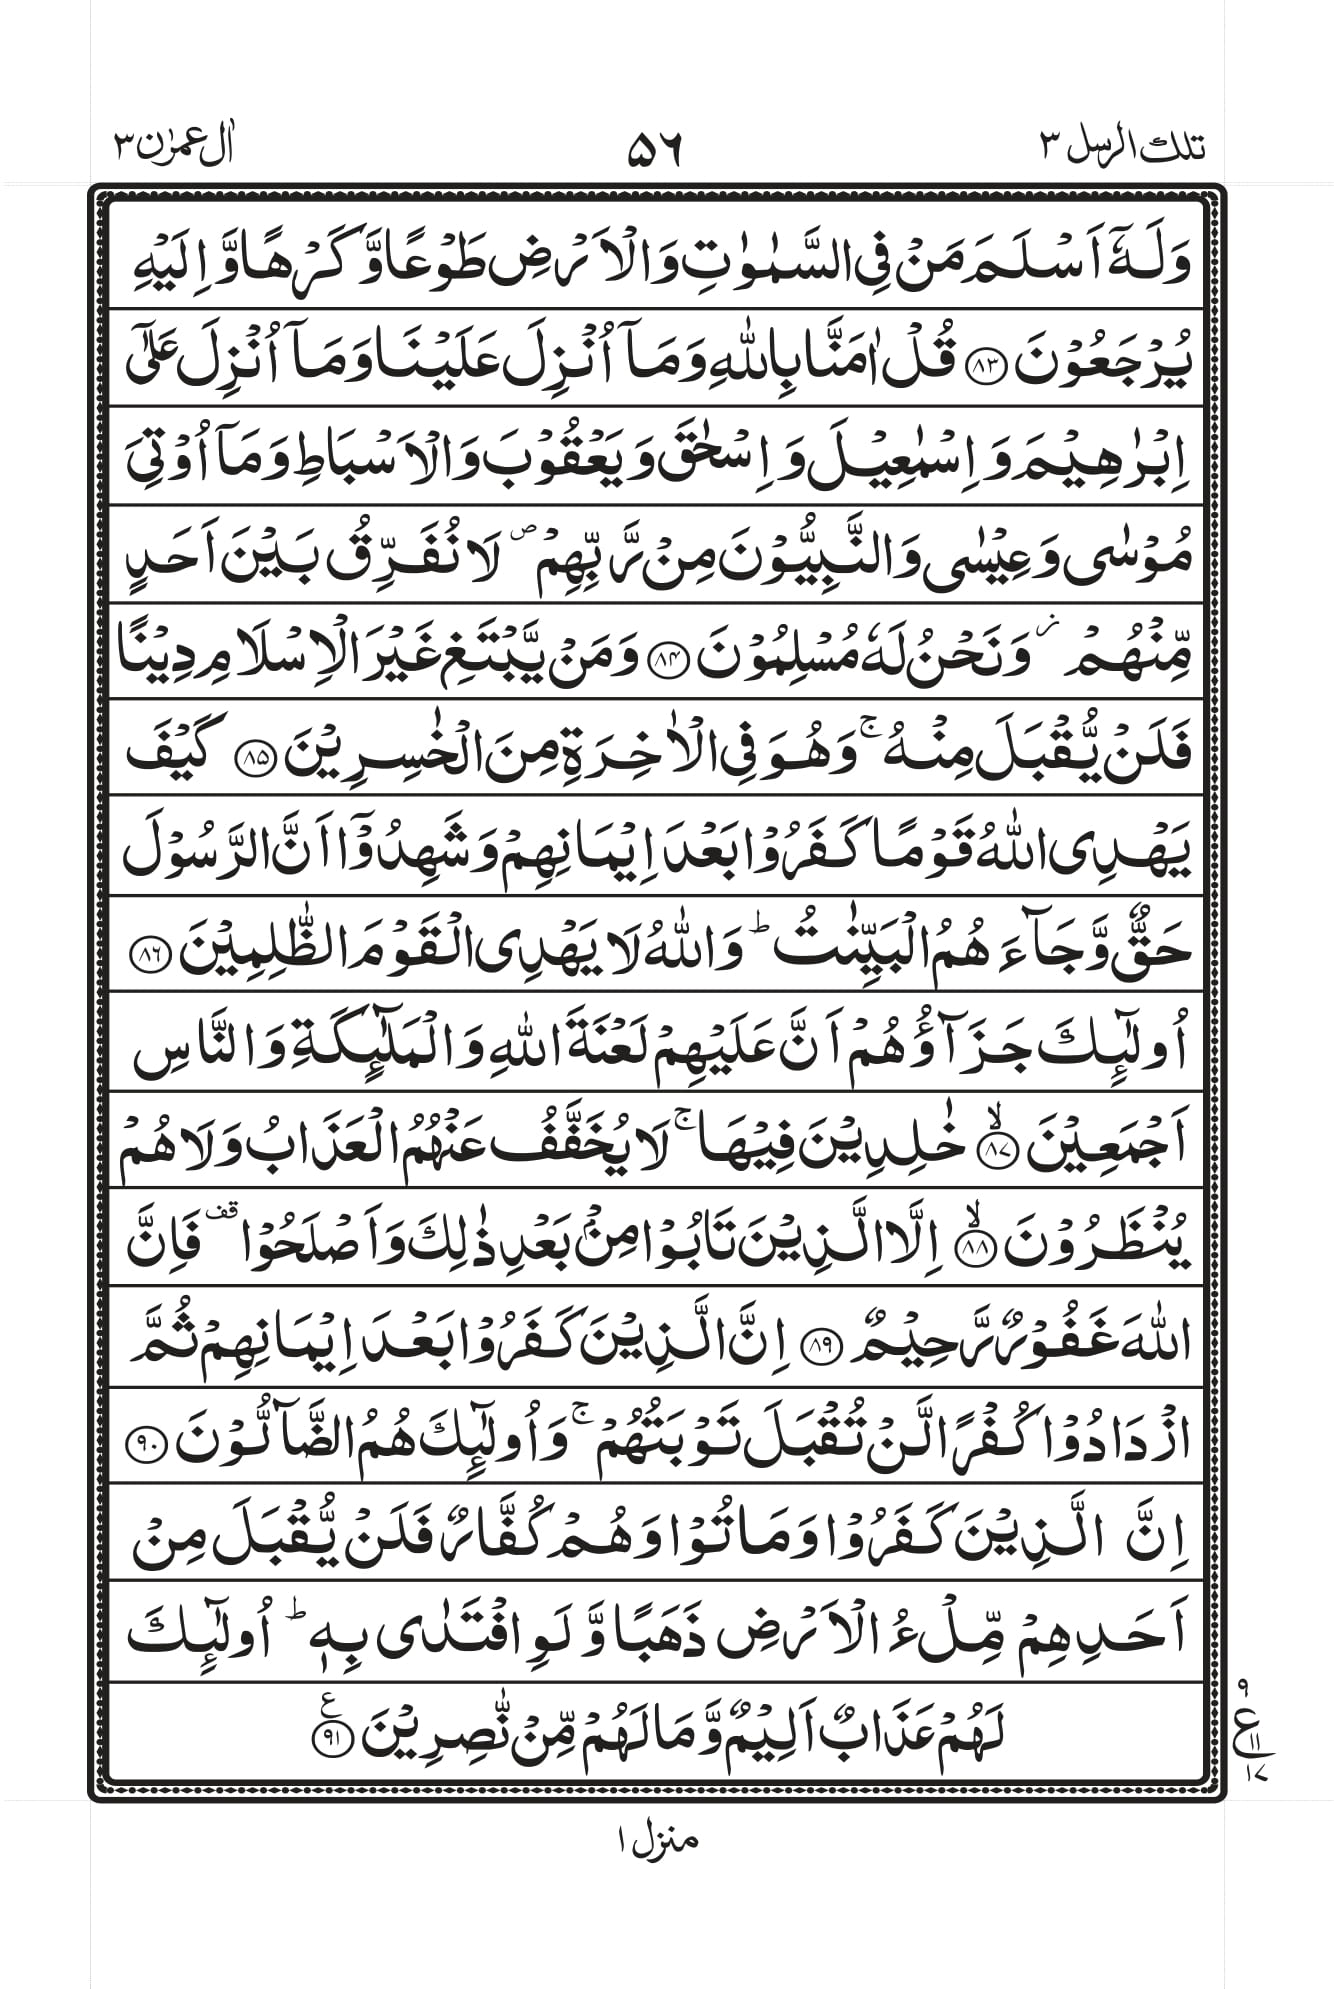 تلك الرسل ٣
٥٦
اٰل عمرٰن ٣
وَلَهٗۤ اَسْلَمَ مَنْ فِى السَّمٰوٰتِ وَالْاَرْضِ طَوْعًا وَّكَرْهًا وَّاِلَيْهِ
يُرْجَعُوْنَ ﴿٨٣﴾ قُلْ اٰمَنَّا بِاللّٰهِ وَمَاۤ اُنْزِلَ عَلَيْنَا وَمَاۤ اُنْزِلَ عَلٰٓى
اِبْرٰهِيْمَ وَاِسْمٰعِيْلَ وَاِسْحٰقَ وَيَعْقُوْبَ وَالْاَسْبَاطِ وَمَاۤ اُوْتِىَ
مُوْسٰى وَعِيْسٰى وَالنَّبِيُّوْنَ مِنْ رَّبِّهِمْ ۪ لَا نُفَرِّقُ بَيْنَ اَحَدٍ
مِّنْهُمْ ؗ وَنَحْنُ لَهٗ مُسْلِمُوْنَ ﴿٨٤﴾ وَمَنْ يَّبْتَغِ غَيْرَ الْاِسْلَامِ دِيْنًا
فَلَنْ يُّقْبَلَ مِنْهُ ۚ وَهُوَ فِى الْاٰخِرَةِ مِنَ الْخٰسِرِيْنَ ﴿٨٥﴾ كَيْفَ
يَهْدِى اللّٰهُ قَوْمًا كَفَرُوْا بَعْدَ اِيْمَانِهِمْ وَشَهِدُوْۤا اَنَّ الرَّسُوْلَ
حَقٌّ وَّجَآءَهُمُ الْبَيِّنٰتُ ؕ وَاللّٰهُ لَا يَهْدِى الْقَوْمَ الظّٰلِمِيْنَ ﴿٨٦﴾
اُولٰٓئِكَ جَزَآؤُهُمْ اَنَّ عَلَيْهِمْ لَعْنَةَ اللّٰهِ وَالْمَلٰٓئِكَةِ وَالنَّاسِ
اَجْمَعِيْنَ ۙ﴿٨٧﴾ خٰلِدِيْنَ فِيْهَا ۚ لَا يُخَفَّفُ عَنْهُمُ الْعَذَابُ وَلَا هُمْ
يُنْظَرُوْنَ ۙ﴿٨٨﴾ اِلَّا الَّذِيْنَ تَابُوْا مِنْۢ بَعْدِ ذٰلِكَ وَاَصْلَحُوْا قف فَاِنَّ
اللّٰهَ غَفُوْرٌ رَّحِيْمٌ ﴿٨٩﴾ اِنَّ الَّذِيْنَ كَفَرُوْا بَعْدَ اِيْمَانِهِمْ ثُمَّ
ازْدَادُوْا كُفْرًا لَّنْ تُقْبَلَ تَوْبَتُهُمْ ۚ وَاُولٰٓئِكَ هُمُ الضَّآلُّوْنَ ﴿٩٠﴾
اِنَّ الَّذِيْنَ كَفَرُوْا وَمَاتُوْا وَهُمْ كُفَّارٌ فَلَنْ يُّقْبَلَ مِنْ
اَحَدِهِمْ مِّلْءُ الْاَرْضِ ذَهَبًا وَّلَوِ افْتَدٰى بِهٖ ؕ اُولٰٓئِكَ
لَهُمْ عَذَابٌ اَلِيْمٌ وَّمَا لَهُمْ مِّنْ نّٰصِرِيْنَ ﴿٩١﴾ ع
٩
ع
١١
١٧
منزل ١